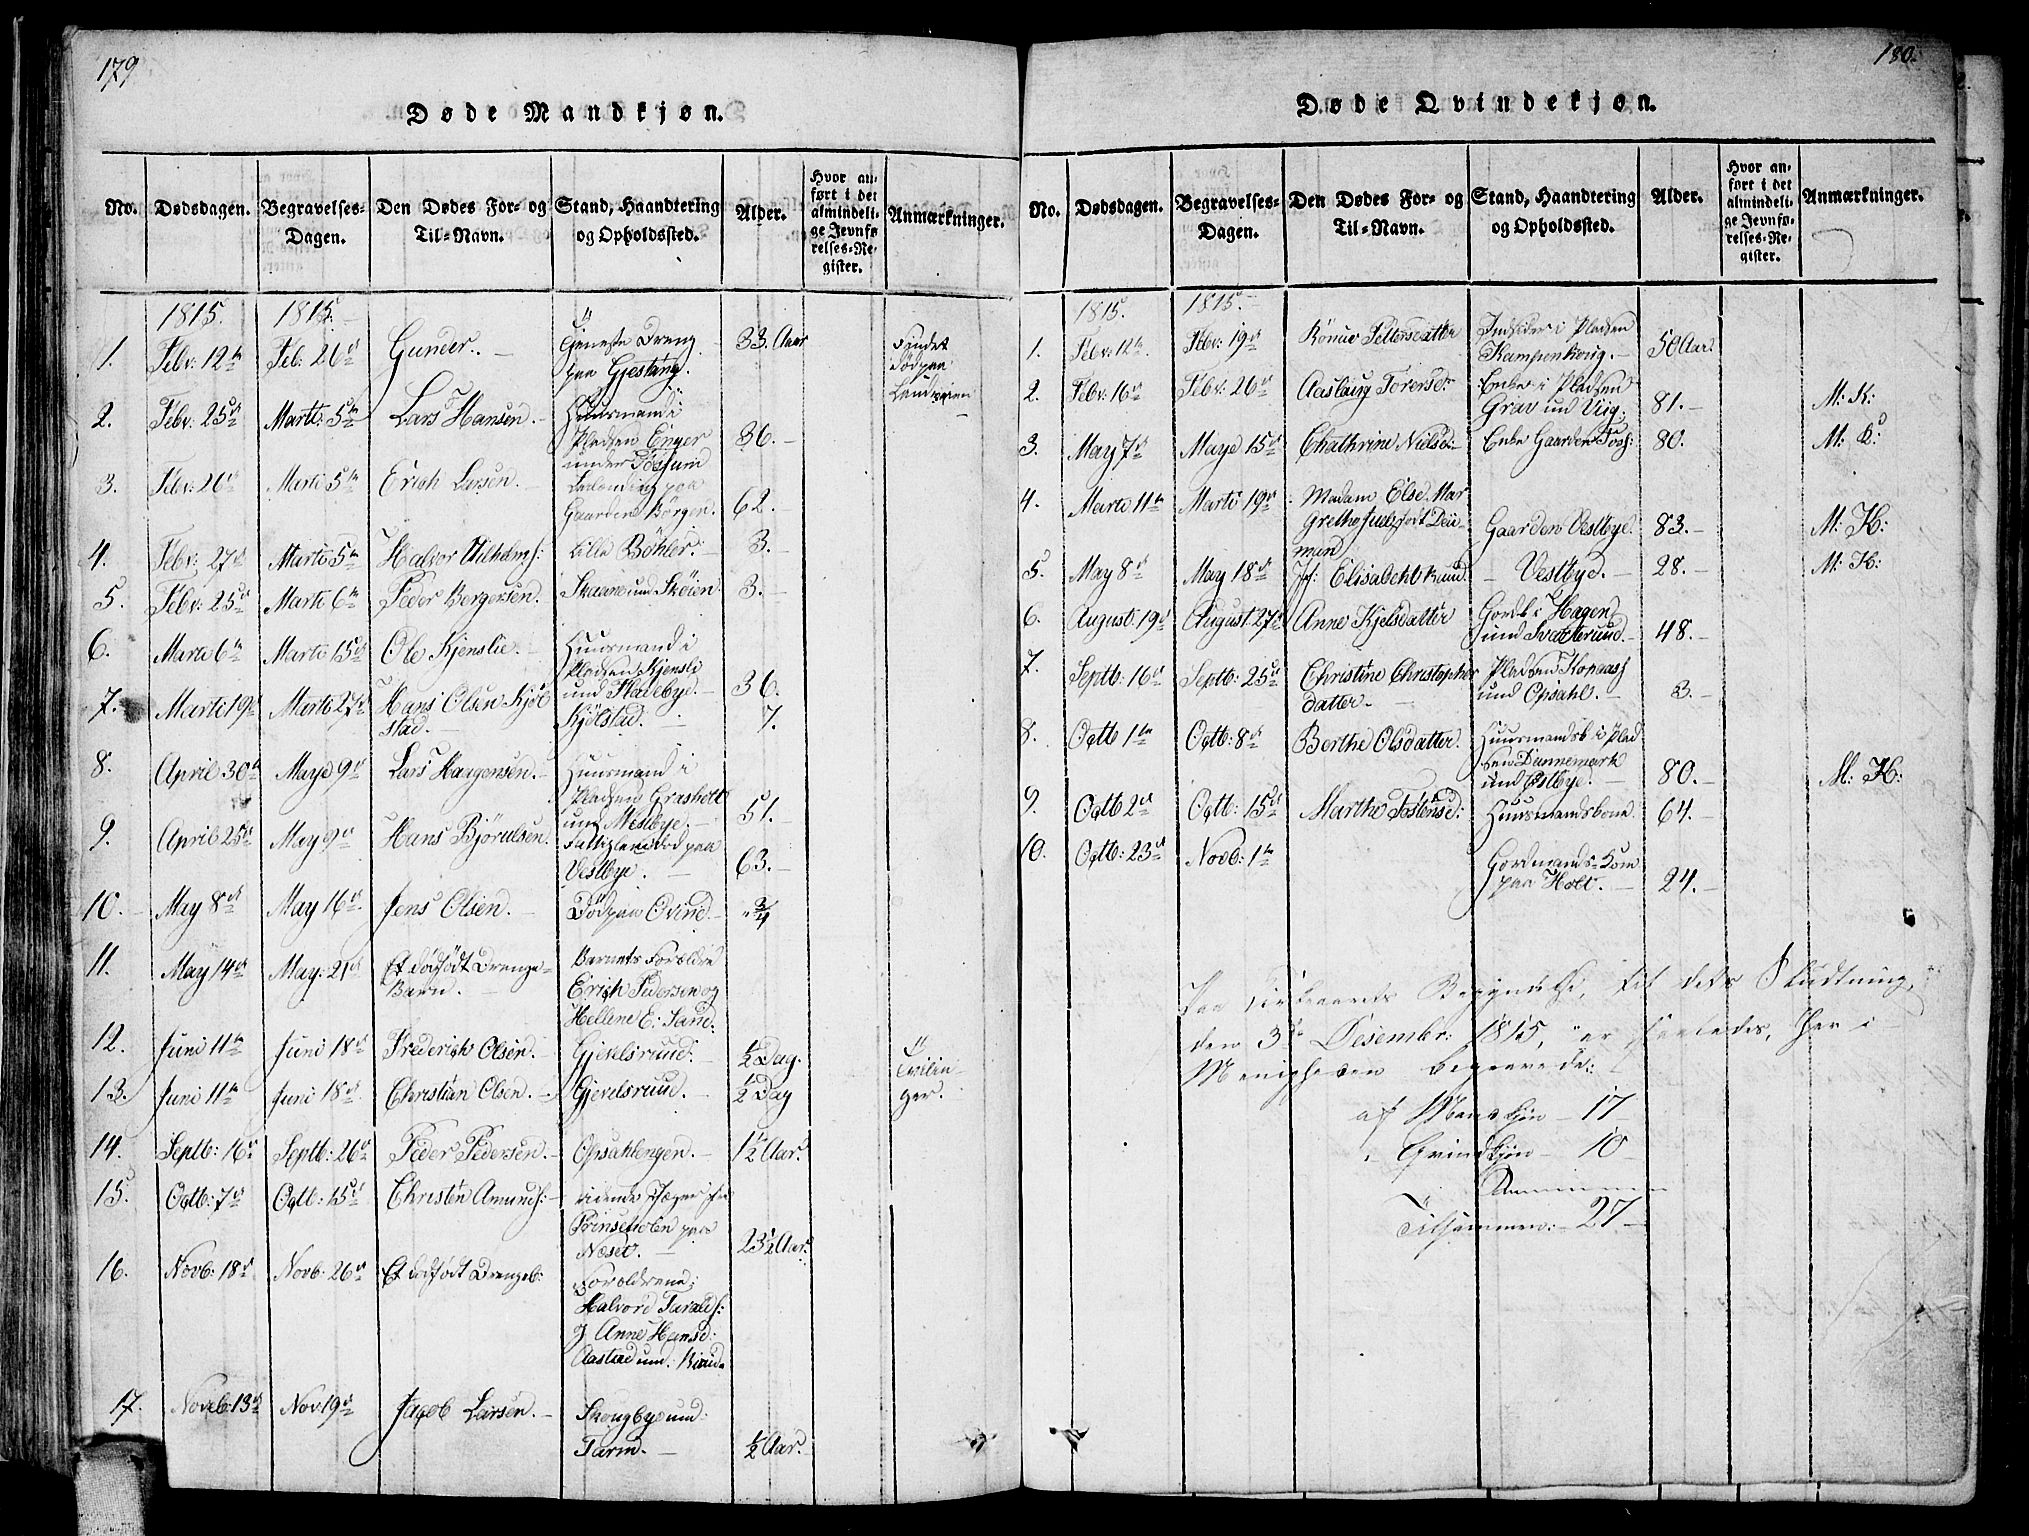 179
Døde Mandkjøn.
No. Dødsdagen. Begravelses-Dagen. Den Dødes For- og Til-Navn. Stand, Haandtering og Opholdssted. Alder. Hvor anført i det almindelige Jevnførelses-Register. Anmærkninger.
1815. 1815.
1. Febr: 12te Feb. 26de Gunder. Tjeneste Dreng paa Gjestang. 33. Aar Fundet Død paa Landveien
2. Febr: 25de Marti: 5te Lars Hansen. Huusmand i Pladsen Enger under Tøssum 36.
3. Febr: 26de Marti 5te Erich Larsen. paa Gaarden Börgen. 62.
4. Febr: 27de Marti 5te Halvor Wilhelms: Lille Böhler. 3.
5. Febr: 25de Marti 6te Peder Bergersen. Skaane und Skøien. 3.
6. Marti 6te Marti 15de Ole Kjenslie. Huusmand i Pladsen Kjensli und Haldbye. 36.
7. Marti 19de Marti 27de Hans Olsen Kjölstad. Kjölstad. 7.
8. April 30te Maye 9de Lars Haagensen. Huusmand i Pladsen Grasholt und Mesbye. 51.
9. April 25de May 9de Hans Bjørulsen. Fattiglem død paa Vestbye. 63.
10. May 8de May 16de Jens Olsen. Död paa Ovind. 3/4
11. May 14de May: 21de Et dødfødt Drenge-Barn. Barnets Forældre Erich Pedersen og Hellene E: Sand.
12. Juni 11te Juni 18de Frederich Olsen. Gjevelsruud. 1/2 Dag. Tvilinger.
13. Juni 11te Juni 18de Christian Olsen. Gjevelsruud. 1/2 Dag
14. Septb: 16de Septb: 26de Peder Pedersen. Opsahlengen. 1 1/2 Aar.
15. Octb: 7de Octb: 15de Christen Amunds: ridende Jæger fra Prinsehoben paa Næset. 23 1/2 Aar.
16. Novb: 18de Novb: 26de Et dødfødt Drengeb: Forældrene: Halvord Taralds: og Anne Hansd: Aastad und:
17. Novb: 13de Nov 19de Jacob Larsen. Skougbye und: Tarm. 1/2 Aar.
180.
Døde Qvindekjøn.
No. Dødsdagen. Begravelses-Dagen. Den Dødes For- og Til-Navn. Stand, Haandtering og Opholdssted. Alder. Hvor anført i det almindelige Jevnførelses-Register. Anmærkninger.
1815. 1815.
1. Febr: 12te Febr: 19de Rönnov Pettersdatter Indsidder i Pladsen Kampenhoug. 50 Aar.
2. Febr: 16de Febr: 26de Aasloug Torensd: Enke i Pladsen Grav und Viig. 81. M: K:
3. May 7de Maye 15de Chathrine Nielsd: Enke Gaarden Foss: 80. M: K:
4. Marti 11te Marti 19de Madam Else Margrethe Juell født Deümand Gaarden Vestbye. 83. M: K:
5. May 8de May 18de Jf: Elisabeth Vestbye. 28. M: K:
6. August 19de August 27de Anne Kjelsdatter Gordk i Hagen und Svatterud. 48.
7. Septb: 16de Septb: 25de Christine Christopherdatter Pladsen und Opsahl. 3.
8. Octb 1te Octb: 8de Berthe Olsdatter. Huusmandsk i Pladsen Dannemark und Østbye. 80. M: K:
9. Octb 2de Octb: 15de Marthe Tostensd: Huusmandskone. 64.
10. Octb: 23de Novb: 1te Gordmands-Kone paa Holt. 24.
Fra Kirkeaarets Begyndelse, til dets Sludtning,
den 3de Desembr: 1815, er saaledes, her i
Menigheden begravede:
af Mandkjön 17
Qvindkjön 10
Tilsammen: 27